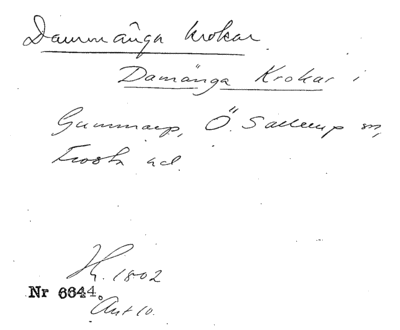 Dammänga krokar
Damänga Krokar i
Gummarp, Ö. Sallerup sn,
Frosta hd.
H. 1802
Nr 6644.
Akt 10.